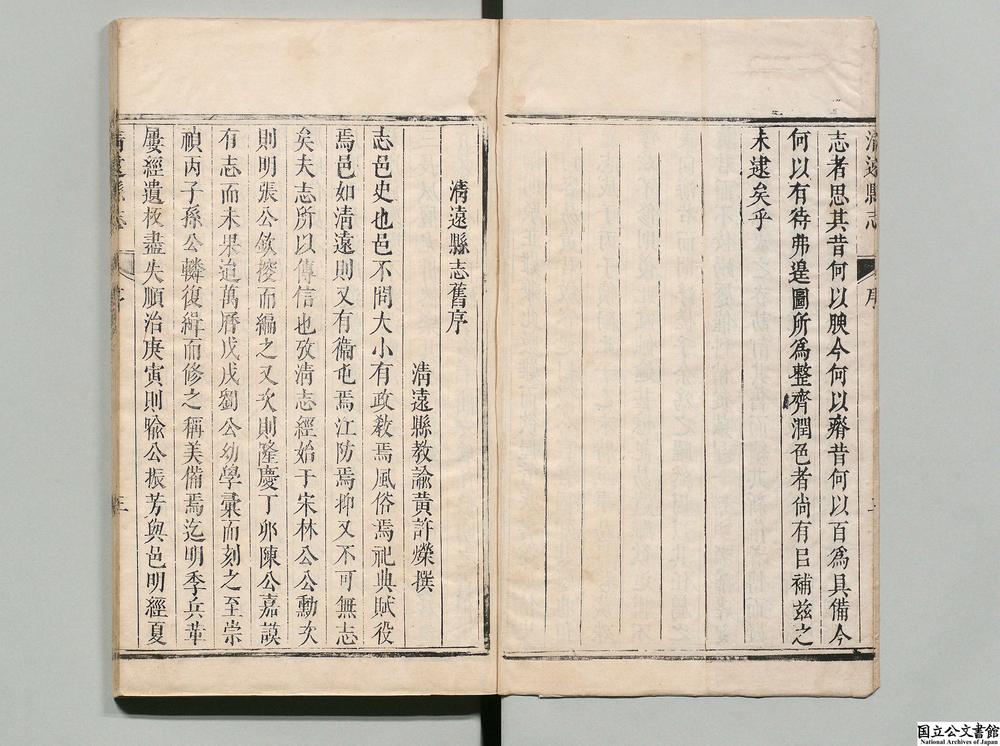 清遠縣志 序
志者思其昔何以腴今何以瘠昔何以百為具備今
何以有待弗遑圖所為整齊潤色者尚有㠯補茲之
未逮矣乎
清遠縣志舊序
清遠縣教諭黃許燦撰
志邑史也邑不問大小有政教焉風俗焉祀典賦役
焉邑如清遠則又有衞屯焉江防焉抑又不可無志
矣夫志所以傳信也攷清志經始于宋林公公勳次
則明張公欽控而編之又次則隆慶丁卯陳公嘉謨
有志而未果迨萬曆戊戌蜀公幼學彙而刻之至崇
禎丙子孫公轔復緝而修之稱美備焉迄明季兵革
屢經遺板盡失順治庚寅則喻公振芳與邑明經夏
清遠縣志 序 三
国立公文書館
National Archives of Japan